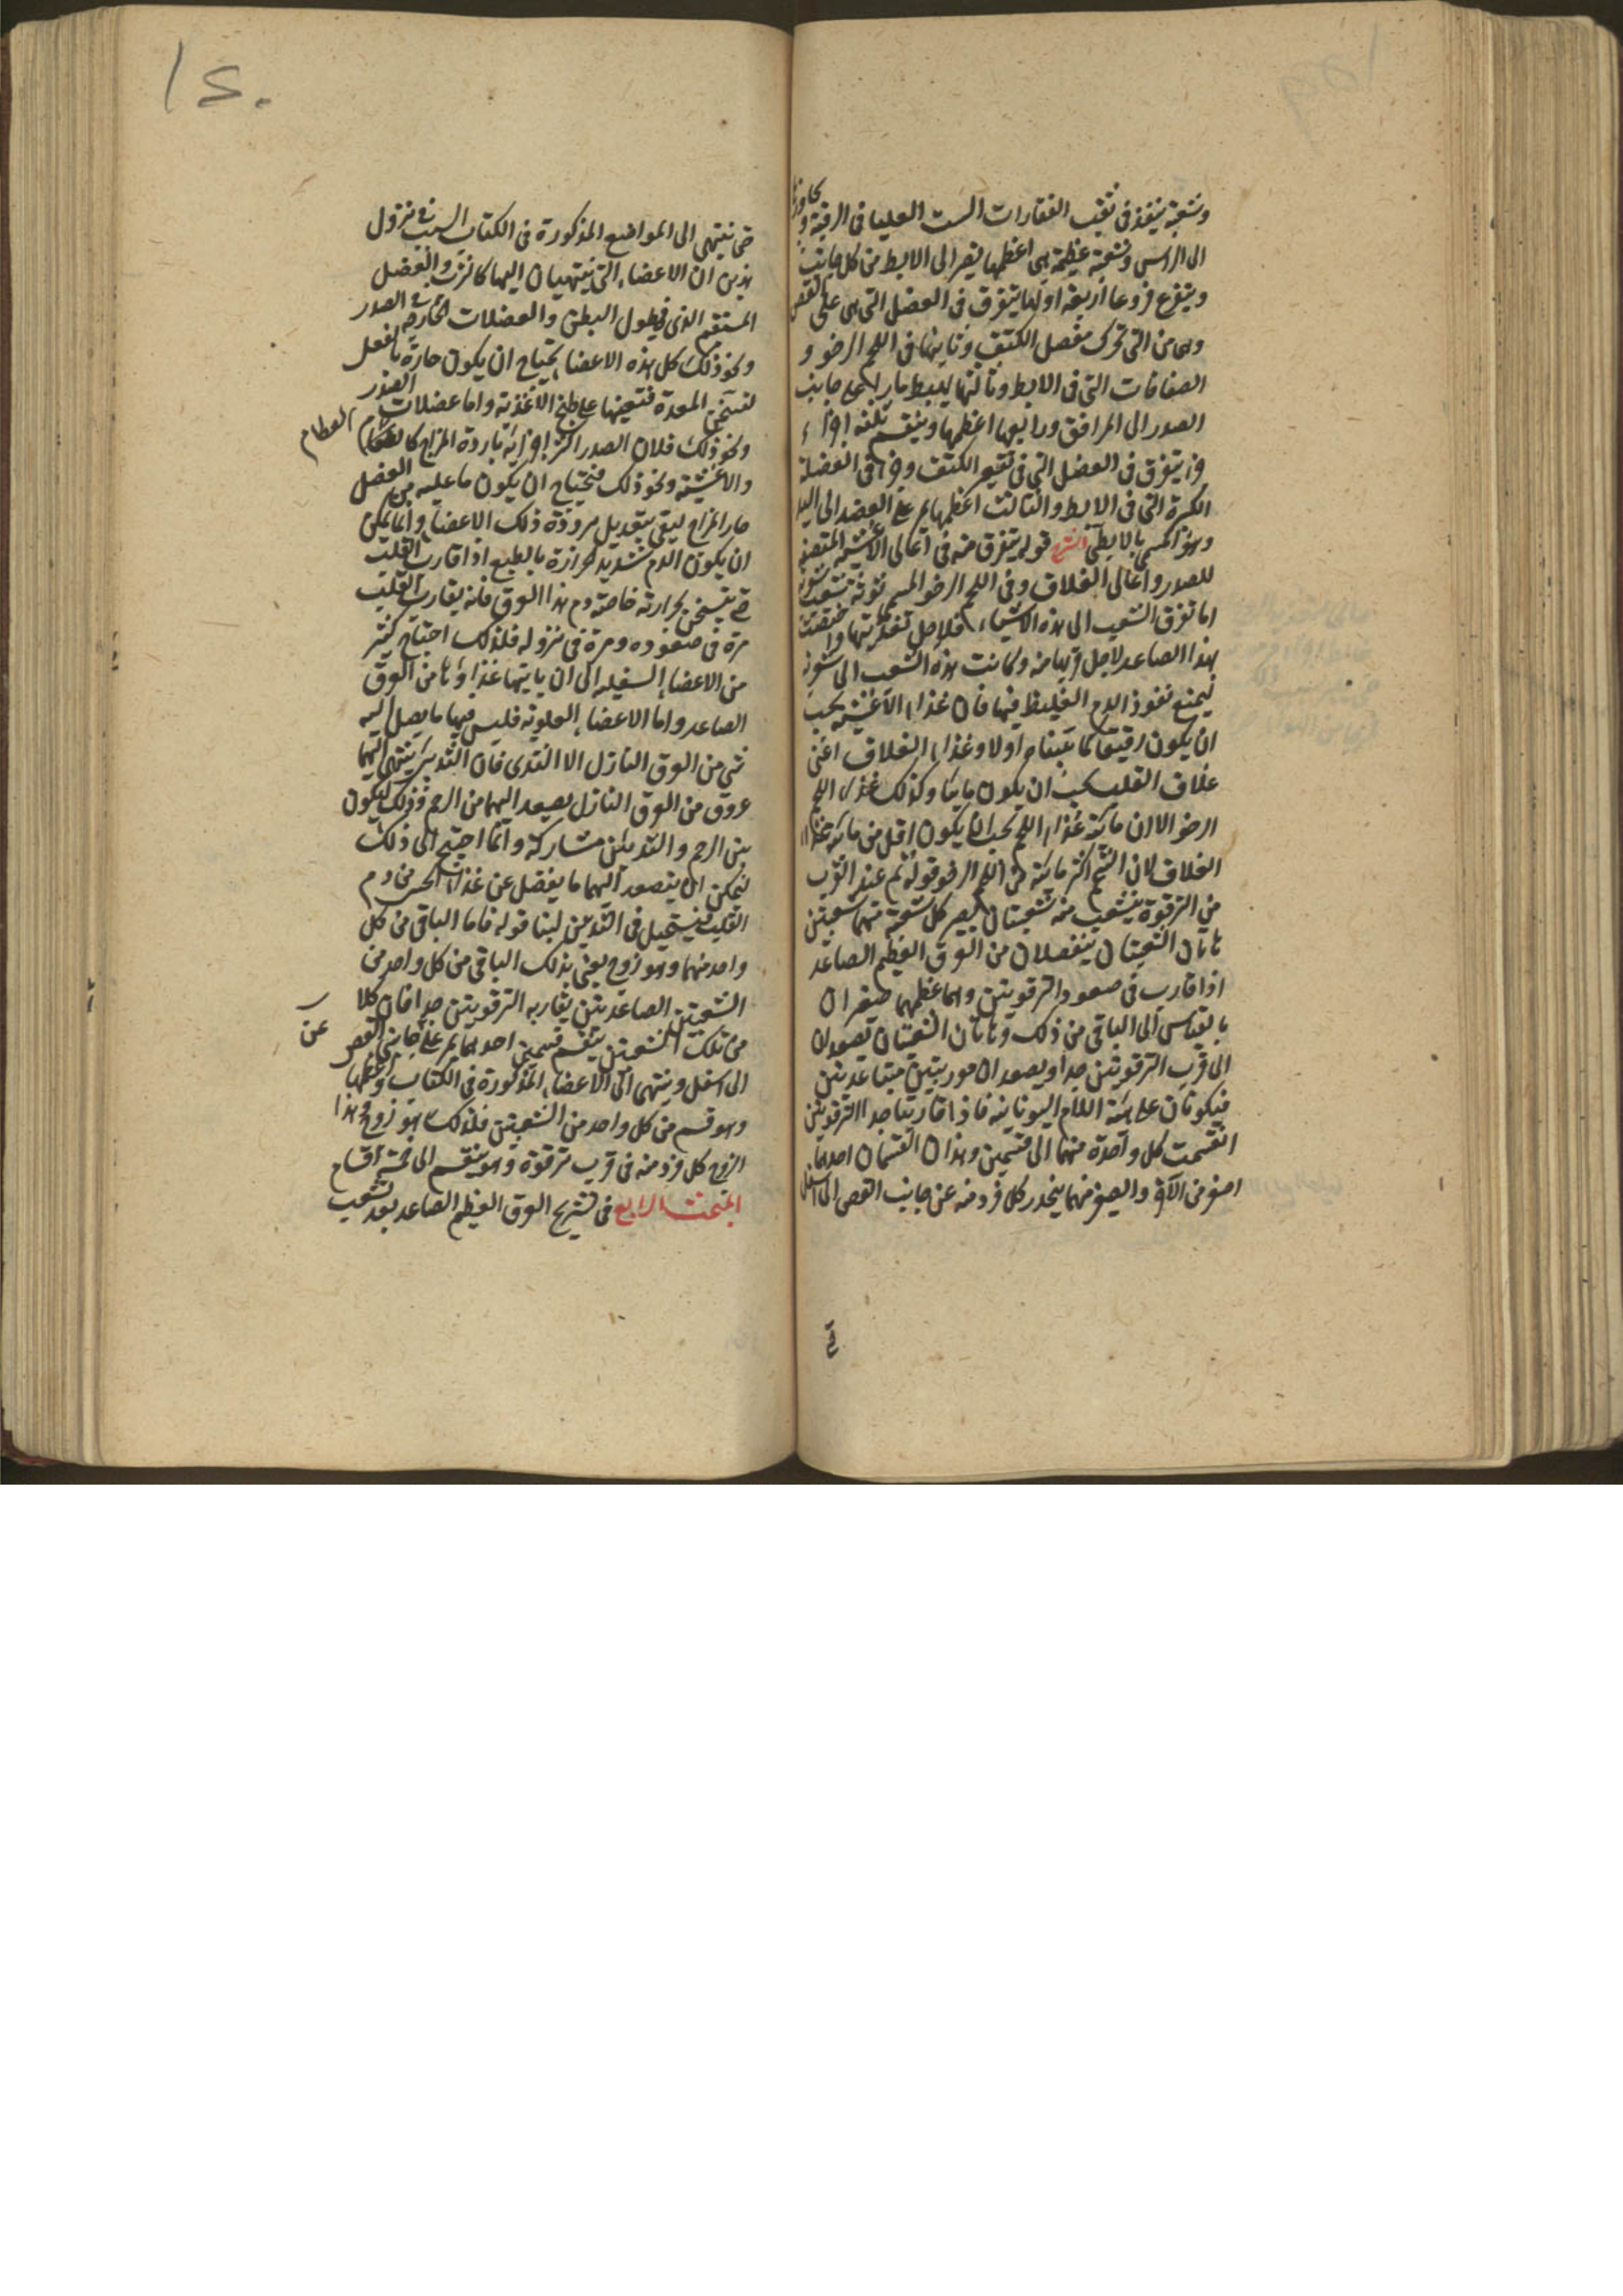 وشعبة ينفذ في ثقب الفقارات الست العليا في الرقبة و
يجاوزها
الى الراس وشعبة عظيمة هي اعظمها يصير الى الابط من كل جانب
ويتفرع فروعا اربعة اولها يتفرق في العضل التي هي على القص
وهي من التي تحرك مفصل الكتف وثانيها في اللحم الرخو و
الصفاقات التي في الابط وثالثها يهبط مارا على جانب
الصدر الى المراق ورابعها اعظمها وينقسم ثلثة اجزاء
جزء يتفرق في العضل التي في تقعير الكتف وجزء في العضلة
الكبيرة التي في الابط والثالث اعظمها يمر على العضد الى اليد
وهو المسمى بالابطي الشرح قوله يتفرق منه في اعالي الاغشية المنصفة
للصدر واعالي الغلاف وفي اللحم الرخو المسمى توثة شعب شعرية
اما تفرق الشعب الى هذه الاشياء فلاجل تغذيتها واختصت
بهذا الصاعد لاجل قربها منه وكانت هذه الشعب الى شعرية
ليمنع نفوذ الدم الغليظ فيها فان غذاء الاغشية يجب
ان يكون رقيقا كما بيناه اولا وغذاء الغلاف اعني
غلاف القلب يجب ان يكون مائيا وكذلك غذاء اللحم
الرخو الا ان مائية غذاء اللحم يجب ان يكون اقل من مائية غذاء
الغلاف لان الشحم اكثر مائية من اللحم الرخو قوله ثم عند القرب
من الترقوة يتشعب منه شعبتان يصير كل شعبة منهما شعبتين
هاتان الشعبتان ينفصلان من العرق العظيم الصاعد
اذا قارب في صعوده الترقوتين وهما عظيمهما صغيران
بالقياس الى الباقي من ذلك وهاتان الشعبتان تصعدان
الى قرب الترقوتين جدا ويصعدان موربتين متباعدتين
فيكونان على هيئة اللام اليونانية فاذا قاربتا جدا الترقوتين
انقسمت كل واحدة منهما الى قسمين وهذان القسمان احدهما
اصغر من الآخر والصغير منهما ينحدر كل فرد منه عن جانب القص الى اسفل
حتى
١٤٠
حتى ينتهي الى المواضع المذكورة في الكتاب السبب في نزول
هذين ان الاعضاء التي ينتهيان اليها كالثرب والعضل
المستقيم الذي في طول البطن والعضلات الخارجة الصدر
ونحو ذلك كل هذه الاعضاء يحتاج ان يكون حارة بالفعل
لتسخن المعدة فتعينها على طبخ الاغذية واما عضلات الصدر
ونحو ذلك فلان الصدر اكثر اجزائه باردة المزاج كالعظام
العظام
والاغشية ونحو ذلك فيحتاج ان يكون ما عليه من العضل
حار المزاج ليقي بتعديل برودة ذلك الاعضاء وانما يمكن
ان يكون الدم شديد الحرارة بالطبع اذا قارب القلب
حتى يتسخن بحرارته خاصة دم هذا العرق فانه يقارب القلب
مرة في صعوده ومرة في نزوله فلذلك احتاج كثير
من الاعضاء السفلية الى ان ياتيها غذاؤها من العرق
الصاعد واما الاعضاء العلوية فليس فيها ما يصل اليه
شي من العرق النازل الا الثدي فان الثديين ينتهي اليهما
عروق من العرق النازل يصعد اليهما من الرحم وذلك ليكون
بين الرحم والثديين مشاركة وانما احتيج الى ذلك
ليمكن ان يتصعد اليهما ما يفضل عن غذاء الجنين من دم
القلب فيستحيل في الثديين لبنا قوله فاما الباقي من كل
واحد منهما وهو زوج يعني بذلك الباقي من كل واحد من
الشعبتين الصاعدتين يقاربه الترقوتين جدا فان كلا
من تلك الشعبتين ينقسم قسمين احدهما يمر على جانبي القص
عن
الى اسفل وينتهي الى الاعضاء المذكورة في الكتاب واعظمها
وهو قسم من كل واحد من الشعبتين فلذلك هو زوج وهذا
الزوج كل فرد منه في قرب ترقوة وهو ينقسم الى خمسة اقسام
المبحث الرابع في تشريح العرق العظيم الصاعد بعد تشعب